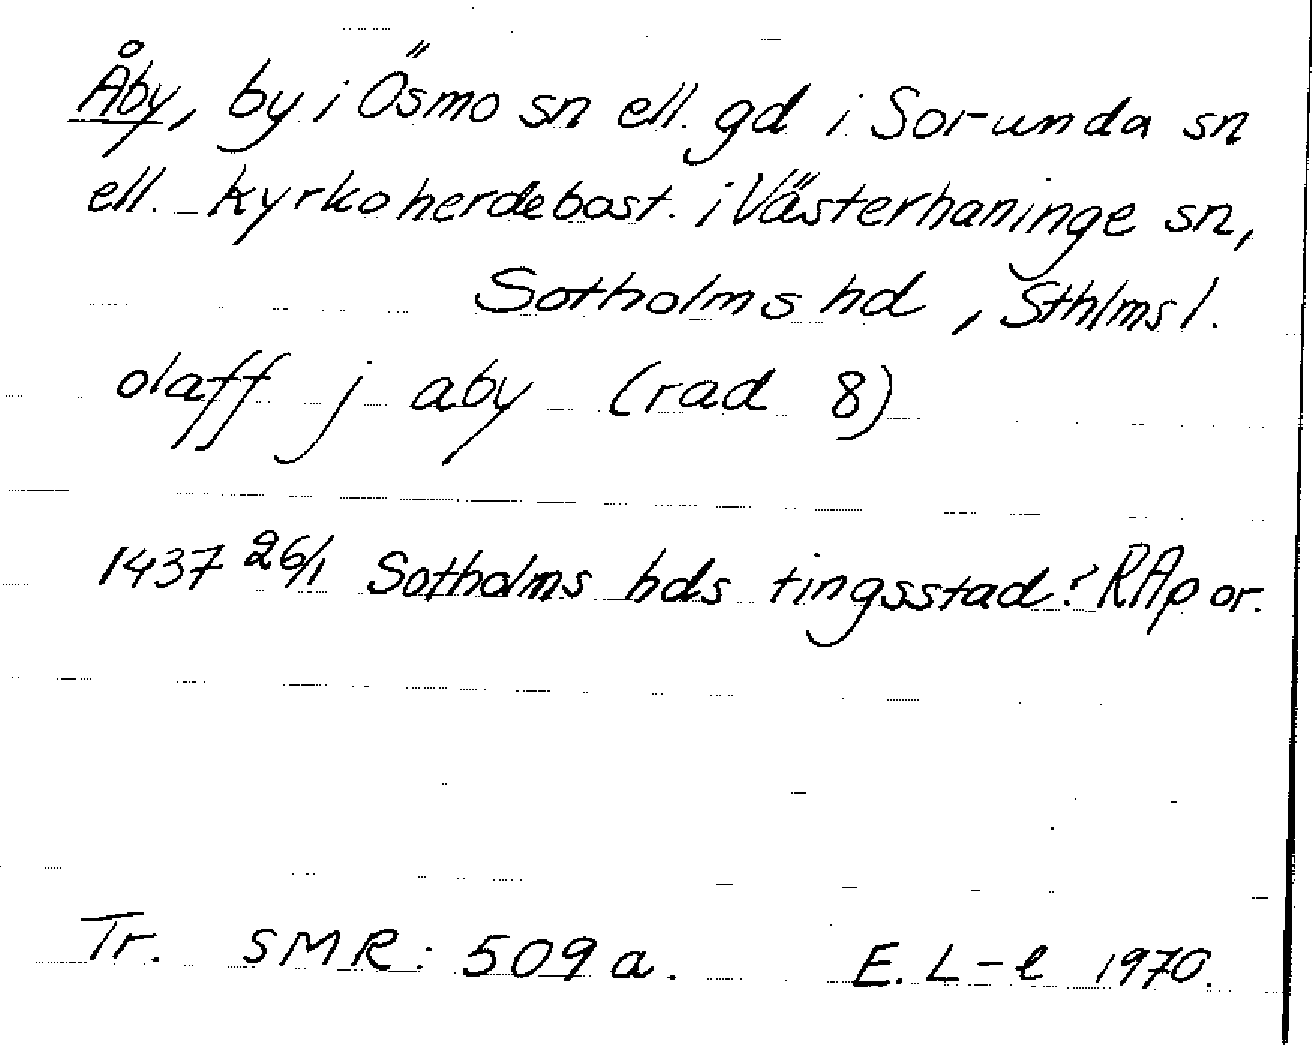 Åby, by i Ösmo sn ell. gd i Sorunda sn
ell. kyrkoherdebost. i Västerhaninge sn,
Sotholms hd, Sthlms l.
olaff j aby (rad 8)
1437 26/1 Sotholms hds tingsstad? RAp or.
Tr. SMR: 509 a. E. L-l 1970.